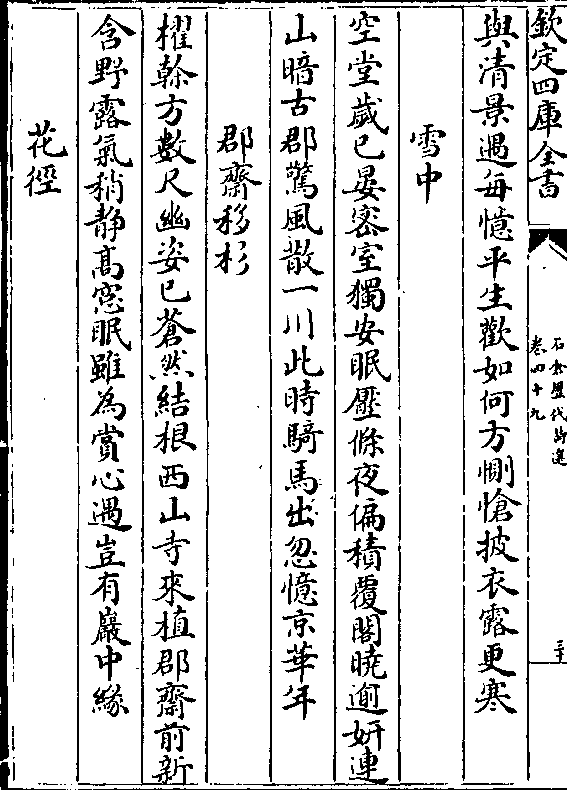 欽定四庫全書
石倉歷代詩選
卷四十九
二十
與清景遇每憶平生歡如何方惻愴披衣露更寒
雪中
空堂歲已晏密室獨安眠壓條夜偏積覆閣曉逾妍連
山暗古郡驚風散一川此時騎馬出忽憶京華年
郡齋移杉
擢榦方數尺幽姿已蒼然結根西山寺來植郡齋前新
含野露氣稍静髙窓眠雖為賞心遇豈有巖中緣
花徑